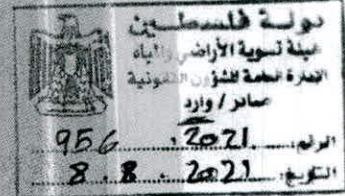 دولة فلسطين
هيئة تسوية الأراضي والمياه
الإدارة العامة للشؤون القانونية
صادر / وارد
الرقم: 2021 . 956
التاريخ: 2021 . 8 . 8